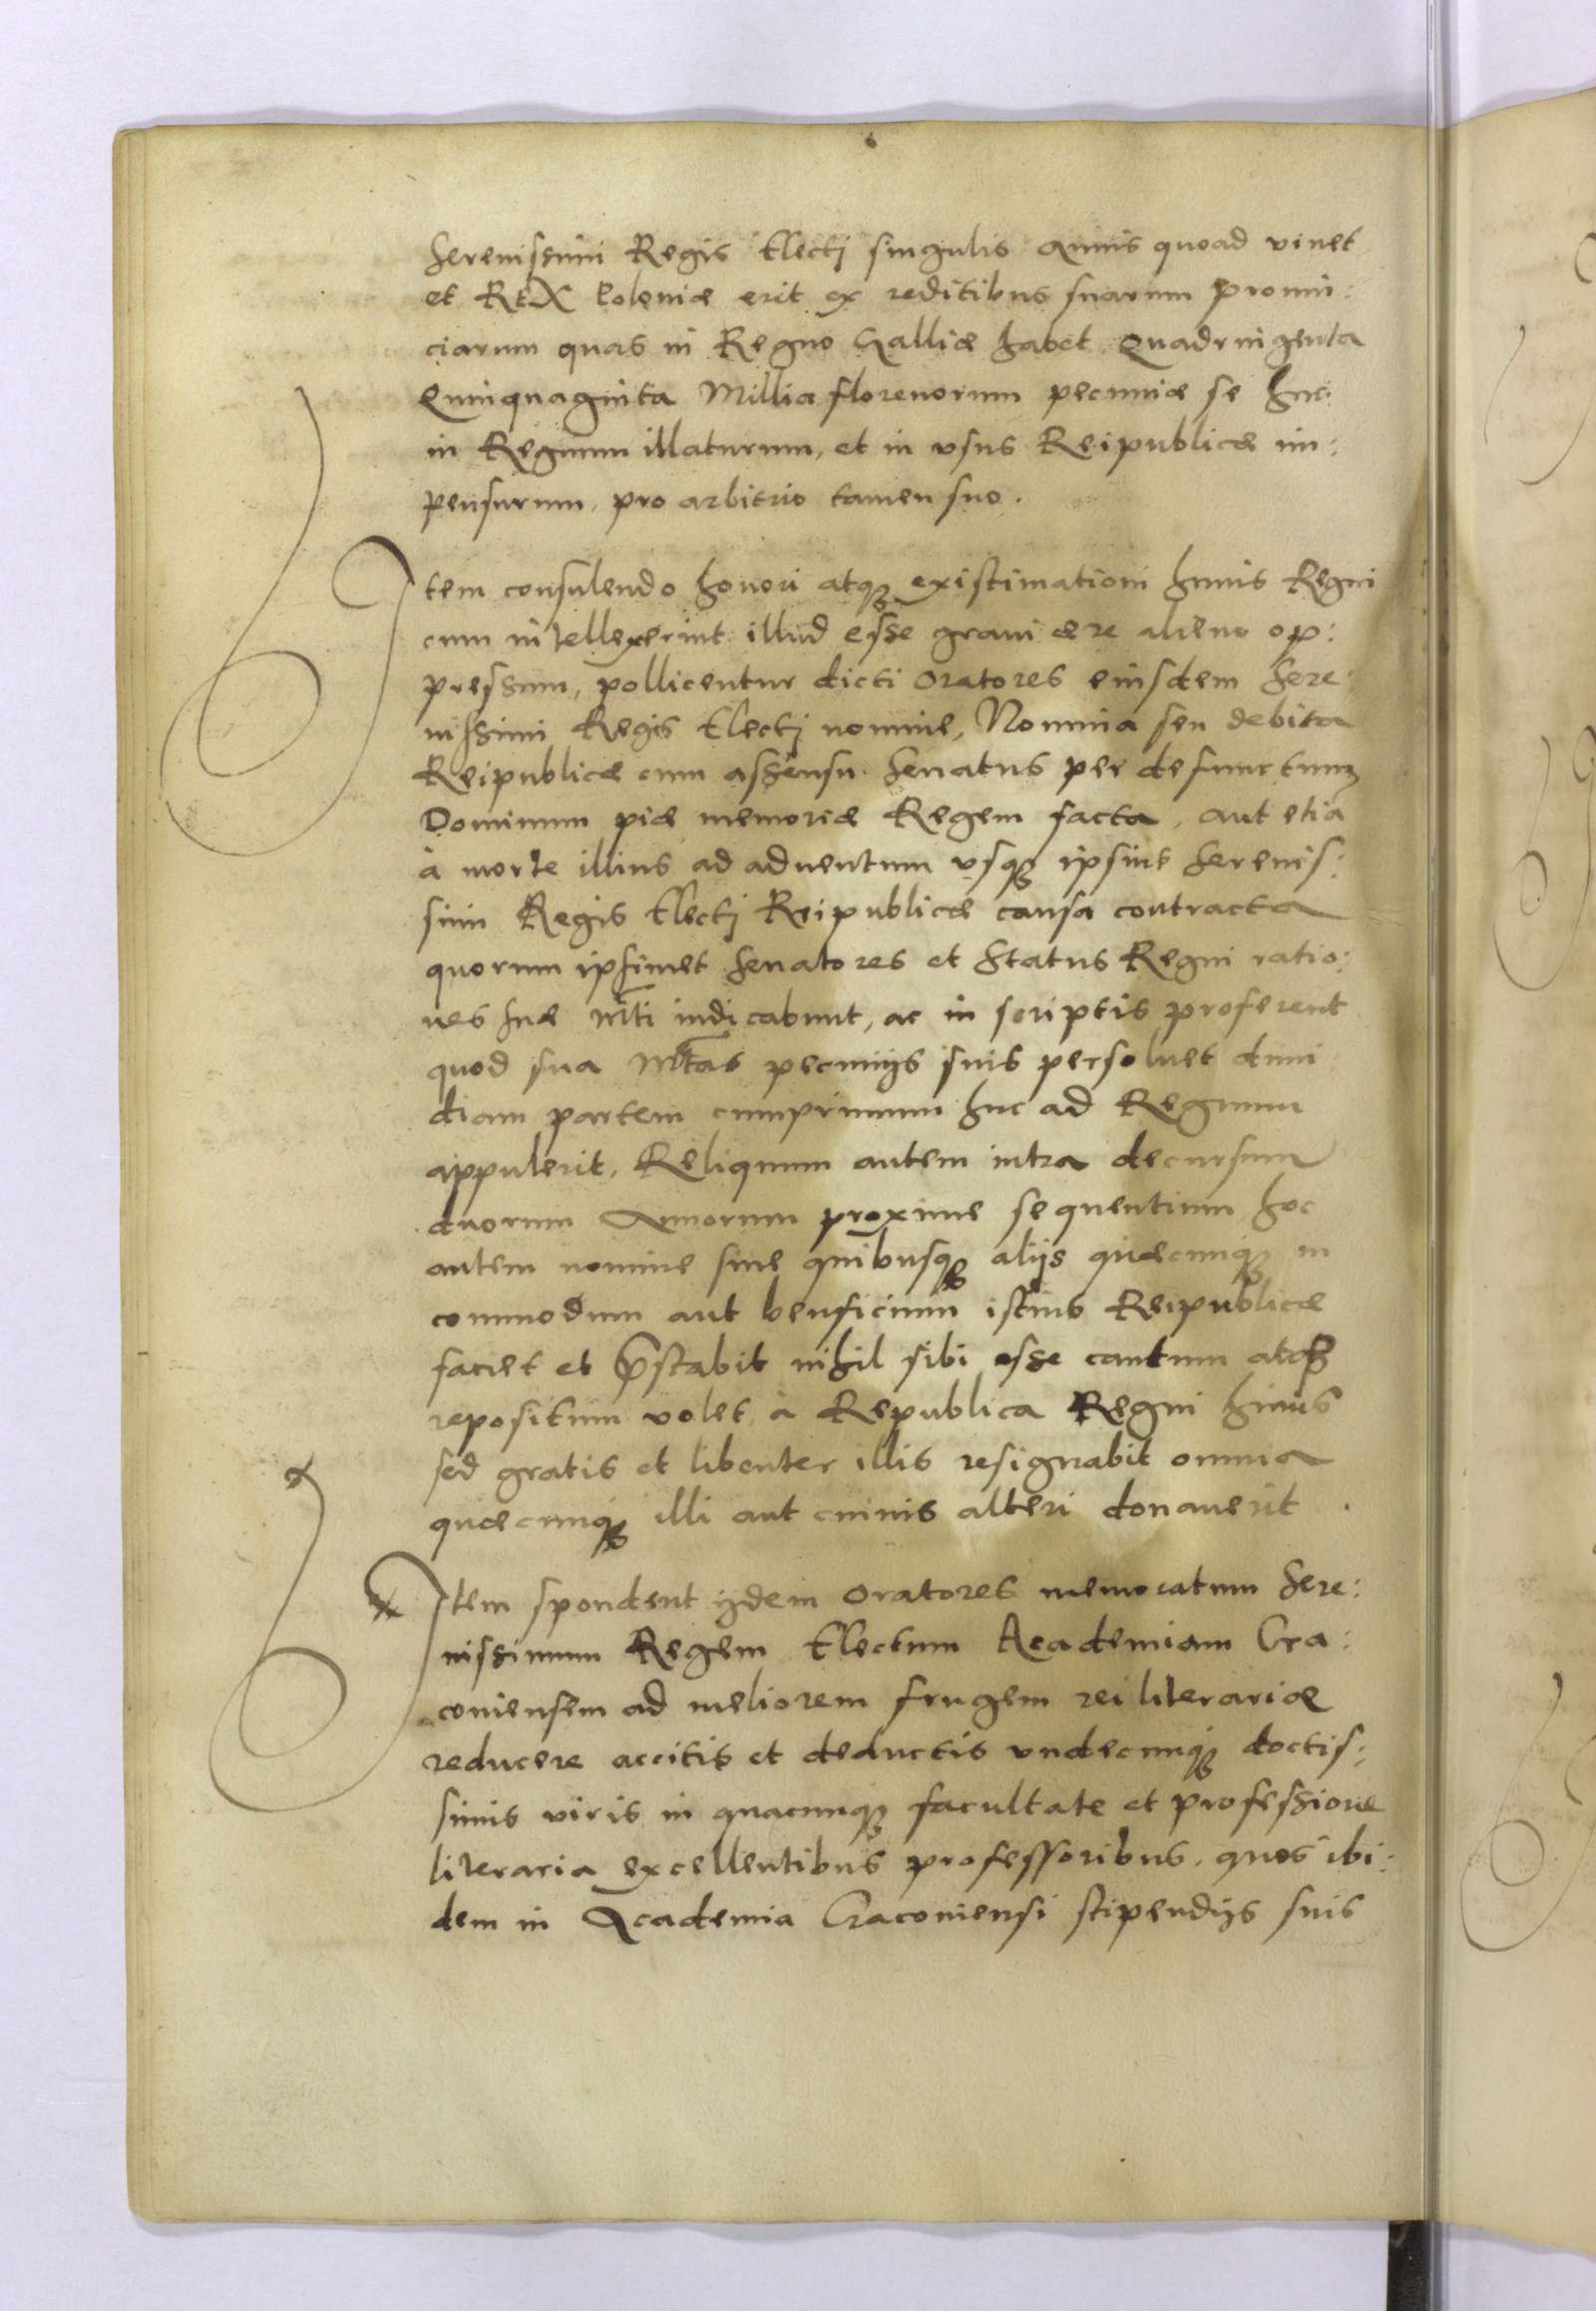 Serenissimi Regis Electj singulis Annis quoad viuet
et REX Poloniæ erit ex reditibus suarum prouin:
ciarum quas in Regno Galliæ habet. Quadringenta
Quinquaginta Millia florenorum pecuniæ se huc
in Regnum illaturum, et in vsus Reipublicæ im:
pensurum, pro arbitrio tamen suo.
Item consulendo honori atqꝫ existimationi huius Regni
cum intellexerint illud esse graui ære alieno op:
pressum, pollicentur dicti Oratores eiusdem Sere:
nissimi Regis Electj nomine, Nomina seu debita
Reipublicæ cum assensu Senatus per defunctum
Dominum piæ memoriæ Regem facta, aut etiã
à morte illius ad aduentum vsqꝫ ipsius Serenis:
simi Regis Electj Reipublicæ causa contracta
quorum ipsimet Senatores et Status Regni ratio:
nes suæ Mti indicabunt, ac in scriptis proferent
quod sua Mtas pecunijs suis persoluet dimi
diam partem cumprimum huc ad Regnum
appulerit, Reliquum autem intra decursum
duorum Annorum proxime sequentium, hoc
autem nomine siue quibusqꝫ alijs quæcunqꝫ in
commodum aut beneficium istius Reipublicæ
faciet et p̃stabit nihil sibi esse cautum atqꝫ
repositum volet à Republica Regni huius
sed gratis et libenter illis resignabit omnia
quæcunqꝫ illi aut cuiuis alteri donauerit.
Item spondent ijdem Oratores memoratum Sere:
nissimum Regem Electum Academiam Cra:
couiensem ad meliorem frugem rei literariæ
reducere accitis et deductis vndecunqꝫ doctis:
simis viris in quacunqꝫ facultate et professione
literaria excellentibus professoribus, quos ibi:
dem in Academia Cracouiensi stipendijs suis